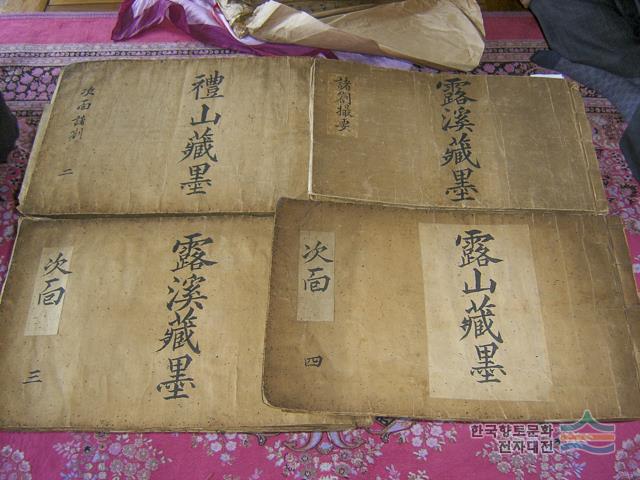 禮山藏墨
次面諸劄
二
露溪藏墨
諸劄撮要
露溪藏墨
次面
三
露山藏墨
次面
四
한국향토문화
전자대전